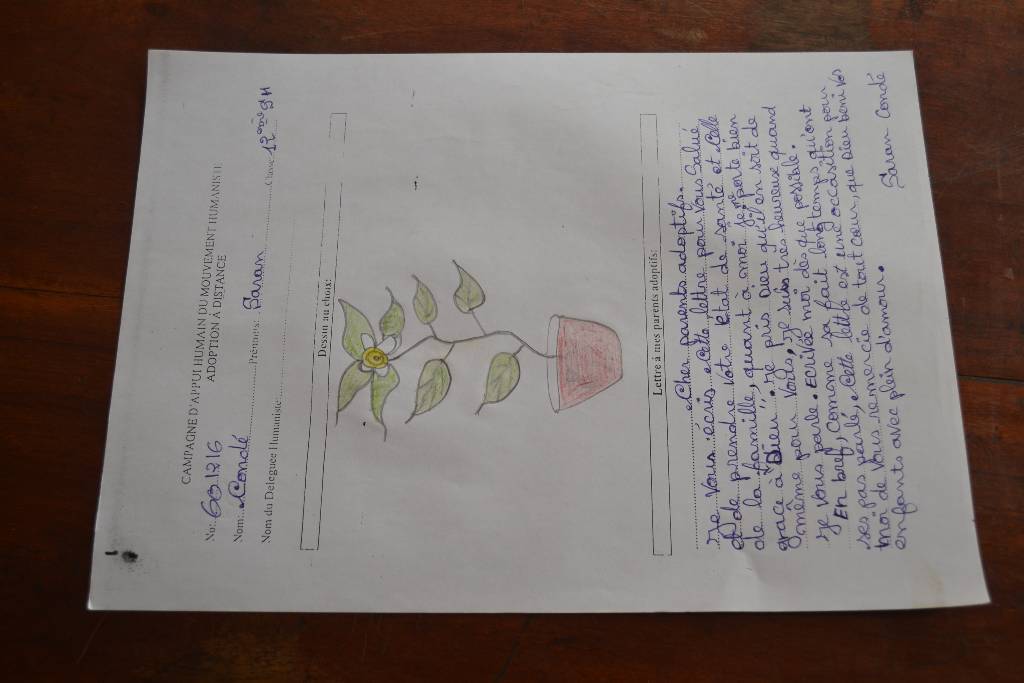 CAMPAGNE D'APPUI HUMAIN DU MOUVEMENT HUMANISTE
ADOPTION À DISTANCE
No: 601216
Nom: Condé Prénoms: Saran Classe 12ème SM
Nom du Délégué Humaniste:
Dessin au choix:
Lettre à mes parents adoptifs:
Cher parents adoptifs.
Je vous écris cette lettre pour vous Salué
et de prendre votre état de santé et celle
de la famille, quant à moi je me porte bien
grace à Dieu. je pris Dieu qu'il en soit de
même pour vous, je suis tres heureuse quand
je vous parle. Ecrivée moi dès que possible.
En bref, comme sa fait longtemps qu'ont
ses pas parlé, cette lettre est une occasition pour
moi de vous remercie de tout cœur, que Dieu beni vos
enfants avec plein d'amour.
Saran Condé